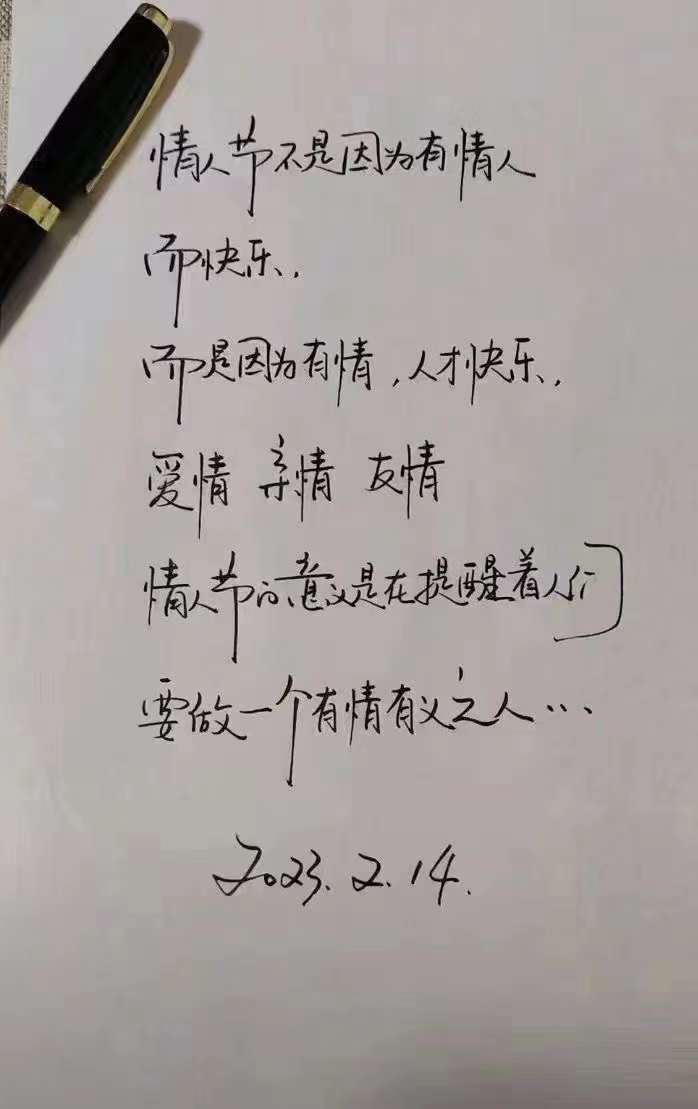 情人节不是因为有情人
而快乐，
而是因为有情，人才快乐，
爱情 亲情 友情
情人节的意义是在提醒着人们
要做一个有情有义之人…
2023.2.14.